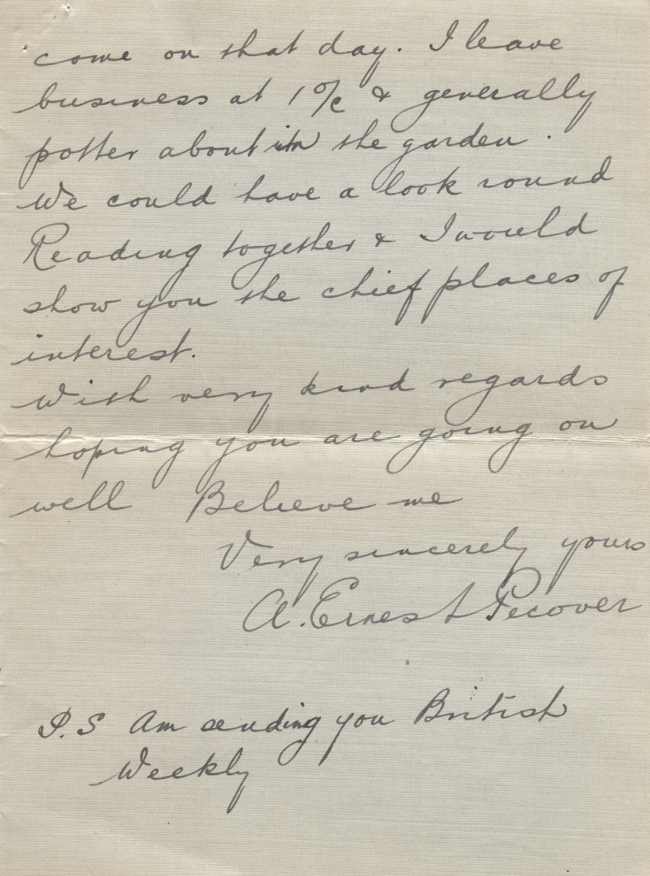 come on that day. I leave
business at 1 o/c & generally
potter about in the garden.
We could have a look round
Reading together & I would
show you the chief places of
interest.
With very kind regards
hoping you are going on
well Believe me
Very sincerely yours
A. Ernest Pecover
P.S Am sending you British
Weekly